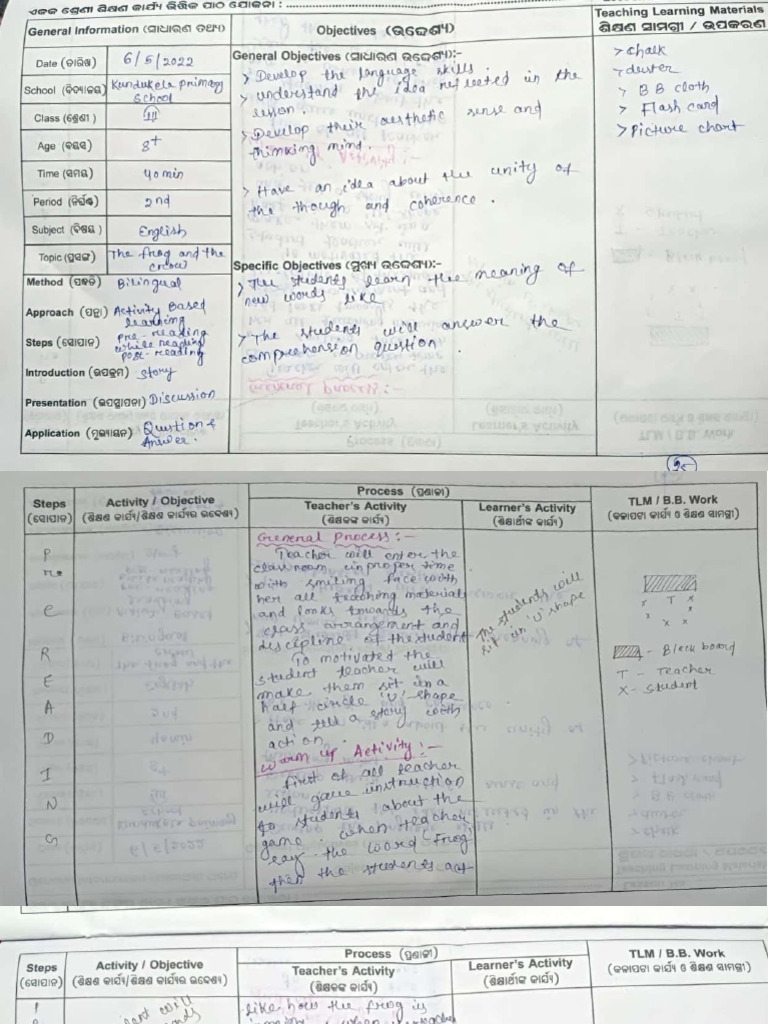 ଏକକ ଶ୍ରେଣୀ ଶିକ୍ଷଣ କାର୍ଯ୍ୟ ଭିତ୍ତିକ ପାଠ ଯୋଜନା :
General Information (ସାଧାରଣ ତଥ୍ୟ)
Date (ତାରିଖ) 6/5/2022
School (ବିଦ୍ୟାଳୟ) Kundukela primary
School
Class (ଶ୍ରେଣୀ) III
Age (ବୟସ) 8+
Time (ସମୟ) 40 min
Period (ପିରିୟଡ) 2nd
Subject (ବିଷୟ) English
Topic (ପ୍ରସଙ୍ଗ) The frog and the
crow
Method (ପଦ୍ଧତି) Bilingual
Approach (ପନ୍ଥା) Activity Based
learning
Steps (ସୋପାନ) pre-reading
while reading
post-reading
Introduction (ଉପକ୍ରମ) story
Presentation (ଉପସ୍ଥାପନା) Discussion
Application (ମୂଲ୍ୟାୟନ) Question &
Answer.
Objectives (ଉଦ୍ଦେଶ୍ୟ)
General Objectives (ସାଧାରଣ ଉଦ୍ଦେଶ୍ୟ):-
> Develop the language skills.
> understand the idea reflected in the
lesson.
> Develop their aesthetic sense and
thinking mind.
> Have an idea about the unity of
the though and coherence.
Specific Objectives (ମୁଖ୍ୟ ଉଦ୍ଦେଶ୍ୟ):-
> The students learn the meaning of
new words like
> The students will answer the
comprehension question.
Teaching Learning Materials
ଶିକ୍ଷଣ ସାମଗ୍ରୀ / ଉପକରଣ
> chalk
> duster
> BB cloth
> Flash card
> Picture chart
Steps
(ସୋପାନ)
Activity / Objective
(ଶିକ୍ଷଣ କାର୍ଯ୍ୟ/ଶିକ୍ଷଣ କାର୍ଯ୍ୟର ଉଦ୍ଦେଶ୍ୟ)
Process (ପ୍ରଣାଳୀ)
Teacher's Activity
(ଶିକ୍ଷକଙ୍କ କାର୍ଯ୍ୟ)
Learner's Activity
(ଶିକ୍ଷାର୍ଥୀଙ୍କ କାର୍ଯ୍ୟ)
TLM / B.B. Work
(କଳାପଟା କାର୍ଯ୍ୟ ଓ ଶିକ୍ଷଣ ସାମଗ୍ରୀ)
P
e
R
E
A
D
I
N
G
General Process :-
Teacher will enter the
classroom in proper time
with smiling face with
her all teaching materials
and looks towards the
class arrangement and
discipline of the student
To motivated the
student teacher will
make them sit in a
half circle 'U' shape
and tell a story with
action.
Warm up Activity :-
First of all teacher
will gave instruction
to students about the
game. when teacher
say the word 'Frog'
then the students act
The students will
sit in 'U' shape
x T x
x x
x x
- Black board
T - Teacher
X - Student
Steps
(ସୋପାନ)
Activity / Objective
(ଶିକ୍ଷଣ କାର୍ଯ୍ୟ/ଶିକ୍ଷଣ କାର୍ଯ୍ୟର ଉଦ୍ଦେଶ୍ୟ)
Process (ପ୍ରଣାଳୀ)
Teacher's Activity
(ଶିକ୍ଷକଙ୍କ କାର୍ଯ୍ୟ)
Learner's Activity
(ଶିକ୍ଷାର୍ଥୀଙ୍କ କାର୍ଯ୍ୟ)
TLM / B.B. Work
(କଳାପଟା କାର୍ଯ୍ୟ ଓ ଶିକ୍ଷଣ ସାମଗ୍ରୀ)
will
like how the frog is